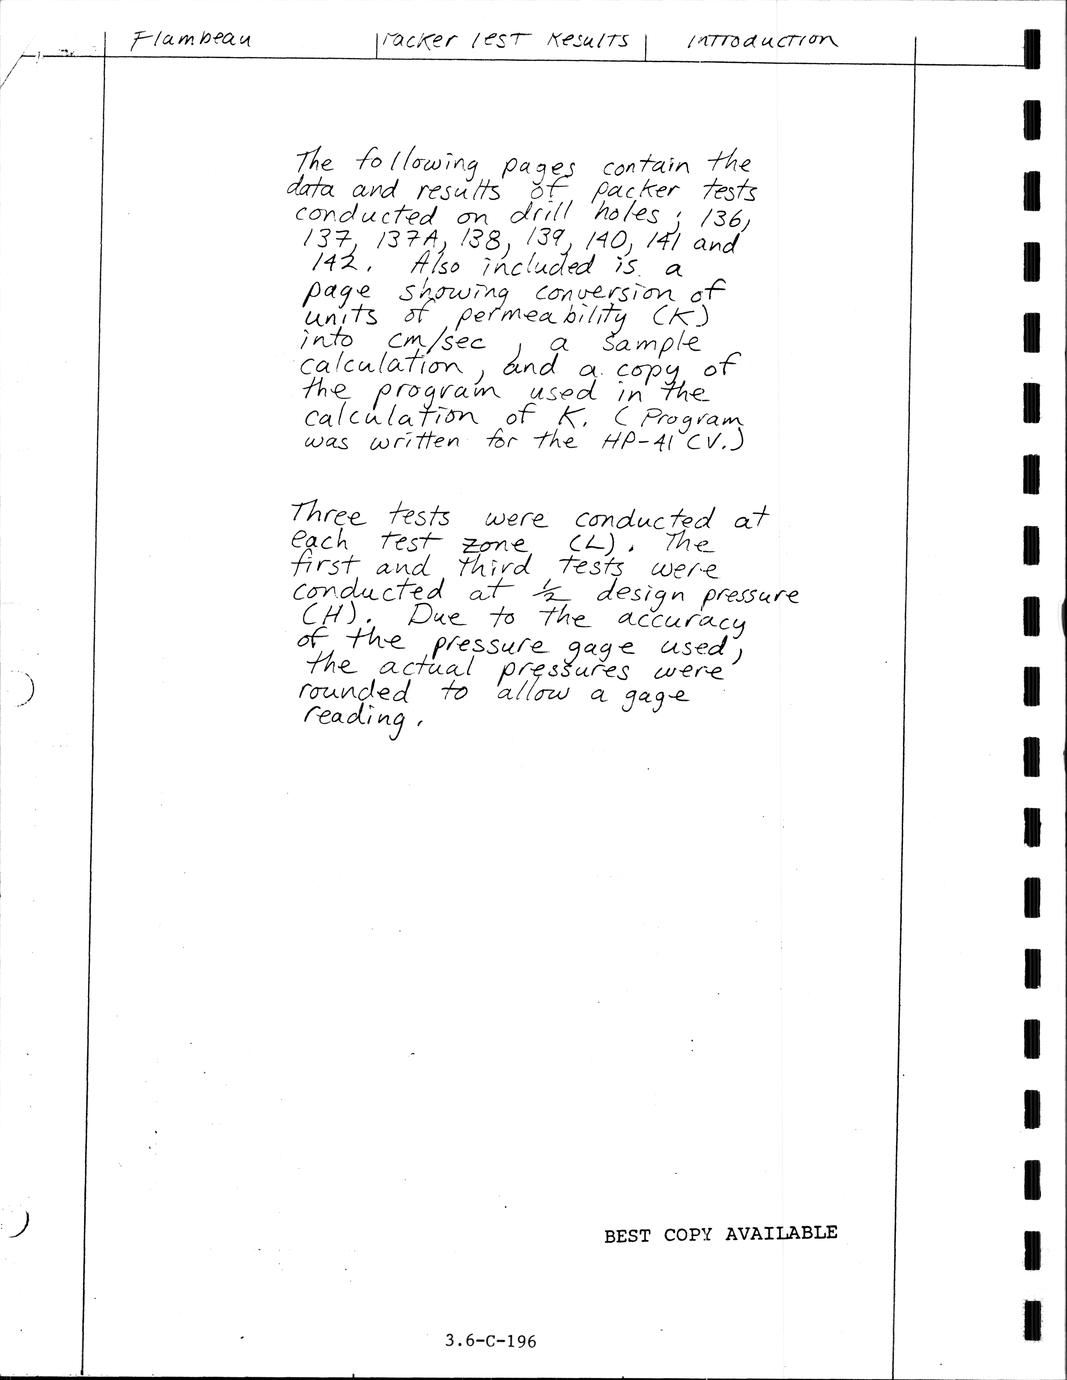 Flambeau | Packer Test Results | Introduction
The following pages contain the
data and results of packer tests
conducted on drill holes; 136,
137, 137A, 138, 139, 140, 141 and
142. Also included is a
page showing conversion of
units of permeability (K)
into cm/sec, a sample
calculation, and a copy of
the program used in the
calculation of K. (Program
was written for the HP-41 CV.)
Three tests were conducted at
each test zone (L). The
first and third tests were
conducted at ½ design pressure
(H). Due to the accuracy
of the pressure gage used,
the actual pressures were
rounded to allow a gage
reading.
BEST COPY AVAILABLE
3.6-C-196